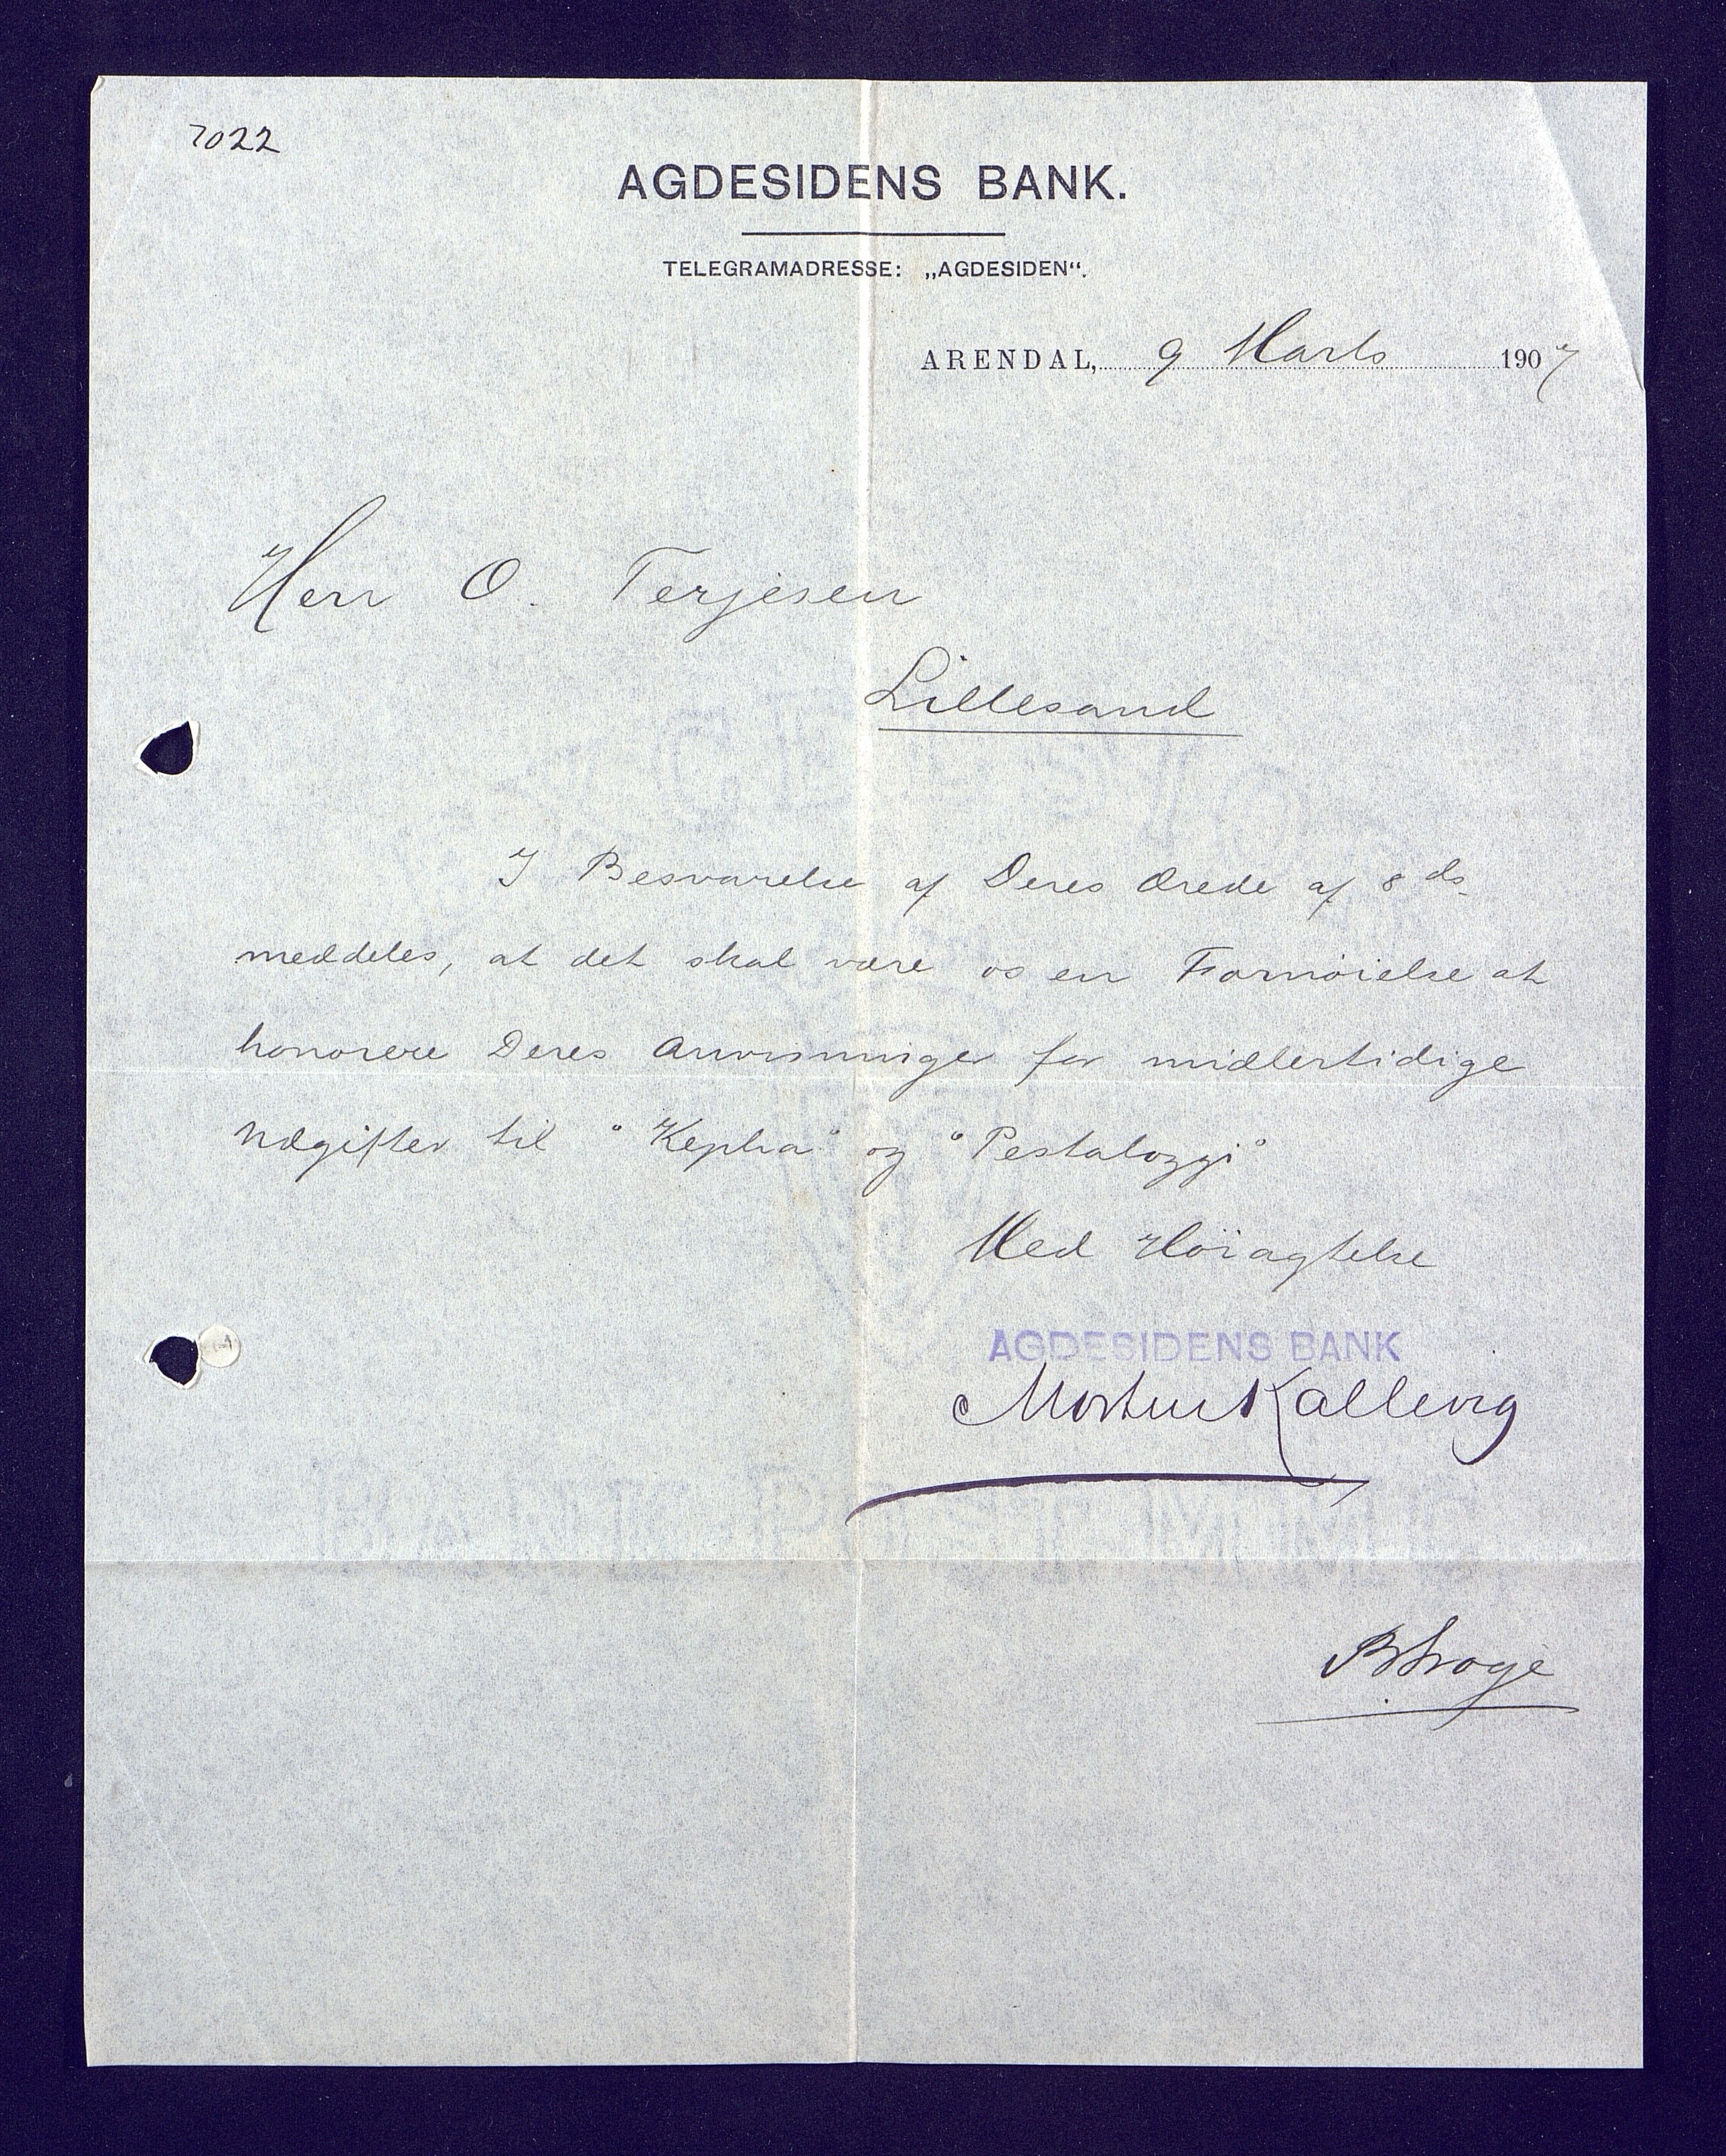 7022
AGDESIDENS BANK.
TELEGRAMADRESSE: „AGDESIDEN“.
ARENDAL, 9 Marts 1907
Herr O. Terjesen
Lillesand
I Besvarelse af Deres Ærede af 8 ds.
meddeles, at det skal være os en Fornöielse at
honorere Deres Anvisninger for midlertidige
Udgifter til "Kepha" og "Pestalozzi"
Med Höiagtelse
AGDESIDENS BANK
Morten Kallevig